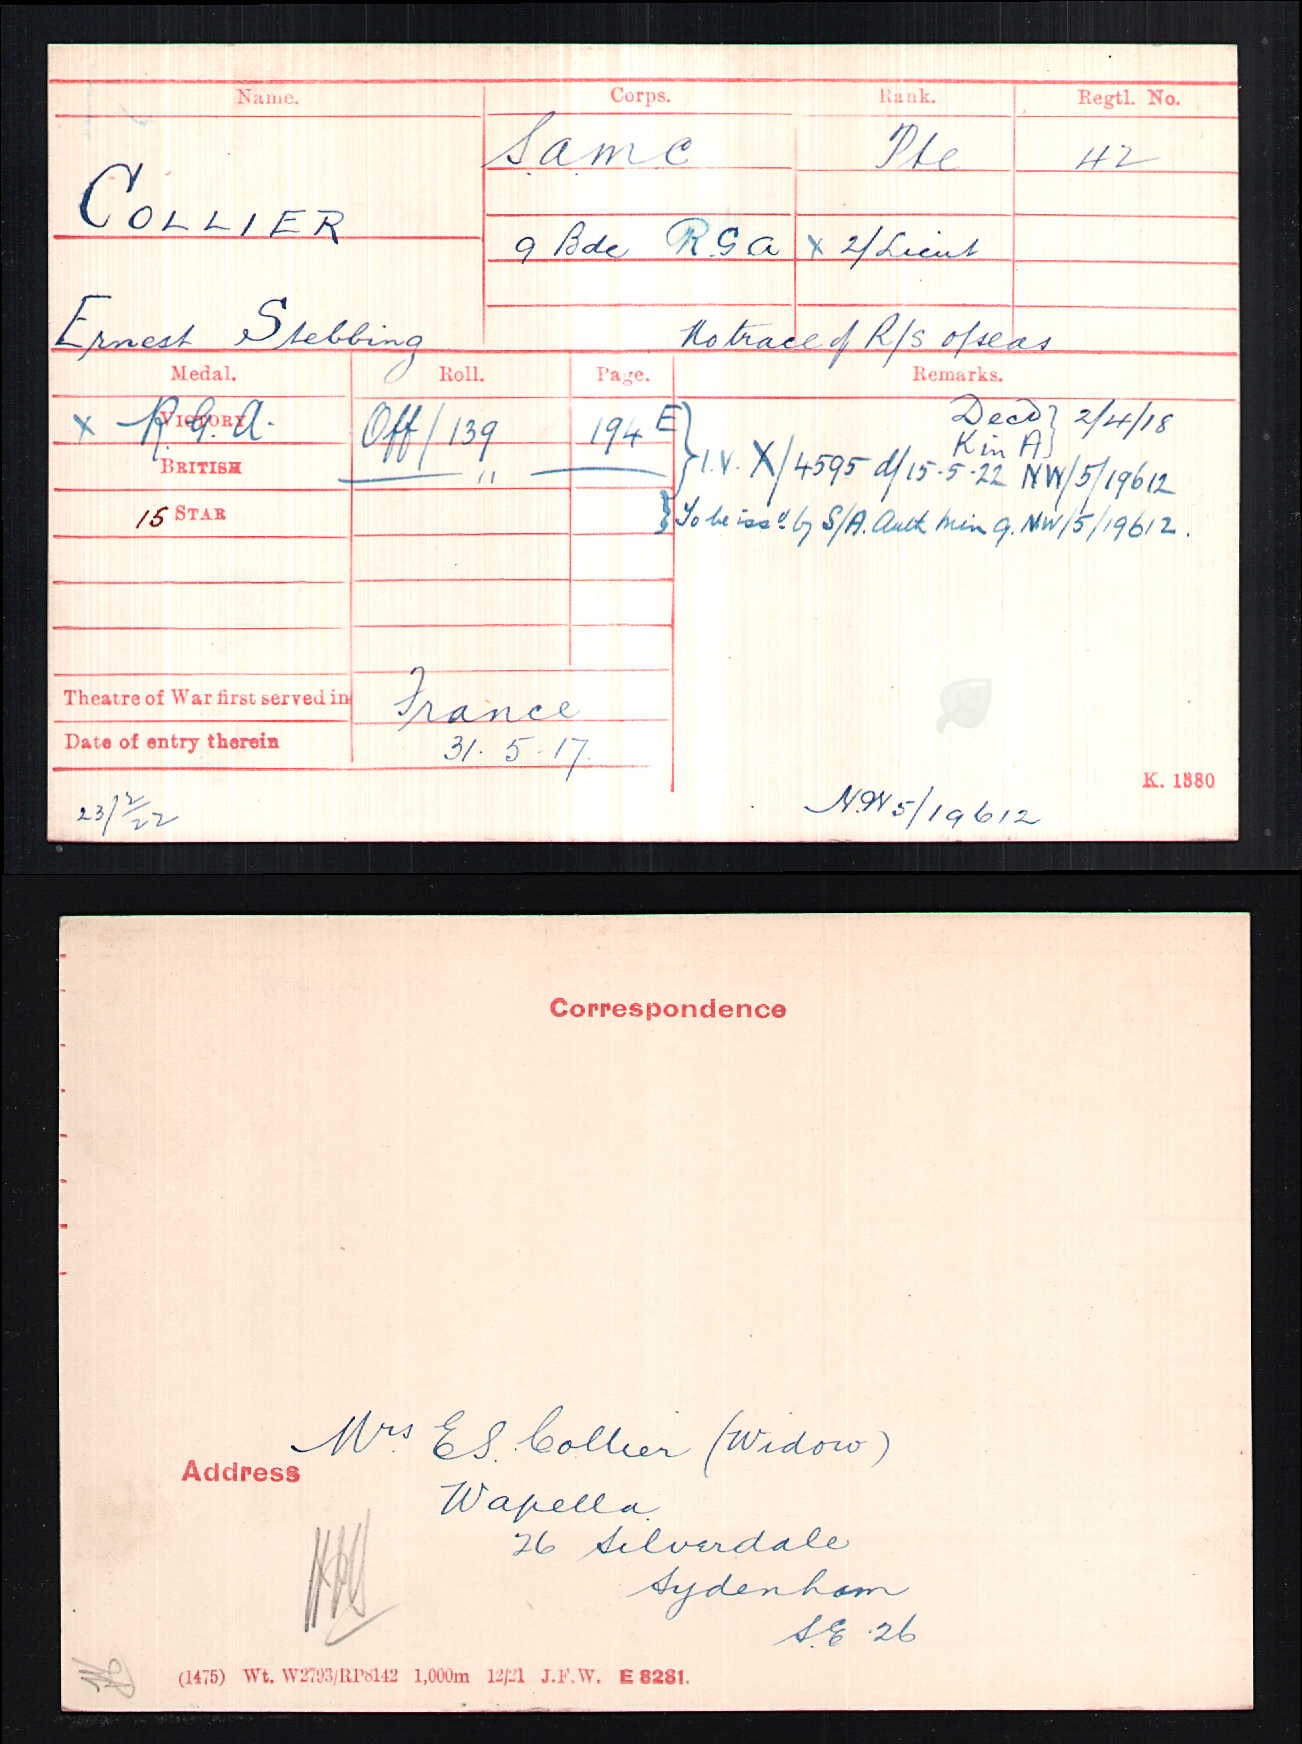 Name. Corps. Rank. Regtl. No.
S.A.M.C Pte 42
COLLIER
9 Bde R.G.A X 2/Lieut
Ernest Stebbing No trace of R/S o/seas
Medal. Roll. Page. Remarks.
X VICTORY R.G.A. Off/139 194 E } Decd } 2/4/18
K in A }
BRITISH " I.V. X/4595 d/15-5-22 NW/5/19612
15 STAR } To be issd by S/A. Auth Min 9. NW/5/19612.
Theatre of War first served in France
Date of entry therein 31. 5. 17.
K. 1380
23/2/22 N.W 5/19612
Correspondence
Mrs E.S. Collier (Widow)
Address
Wapella
26 Silverdale
Sydenham
S.E. 26
(1475) Wt. W2793/RP8142 1,000m 12/21 J.F.W. E 8281.